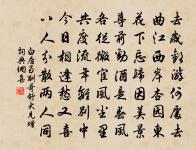 去歲歡游何處去
曲江西岸杏園東
花下忘歸因美景
尊前勸酒是春風
各從微宦風塵里
共度流年離別中
今日相逢愁又喜
八人分散兩人同
白居易酬哥舒大見贈
詞典網書